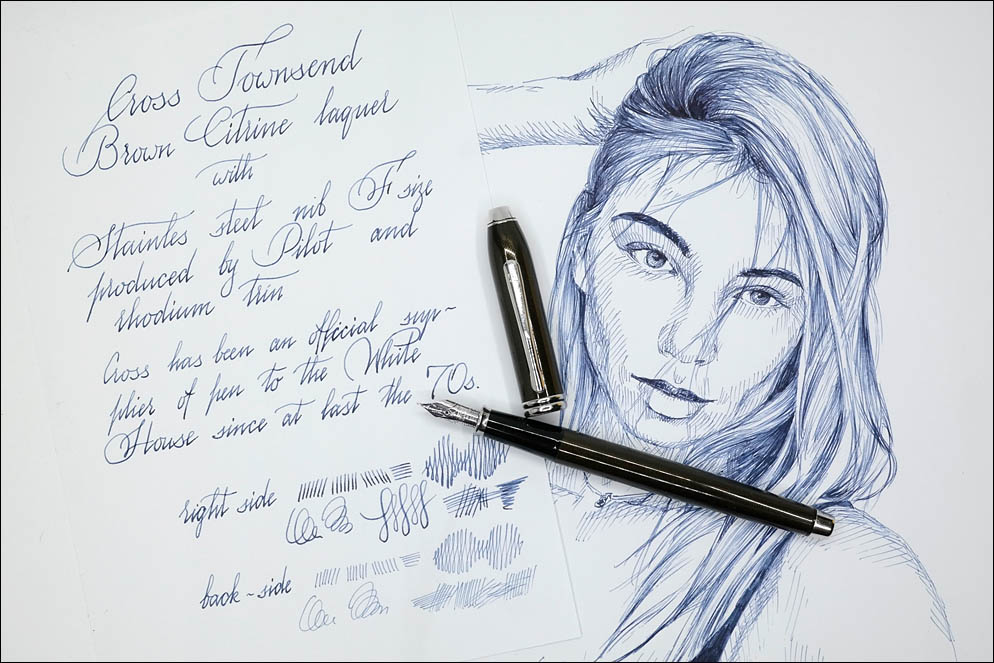 Cross Townsend
Brown Citrine laquer
with
Staintes steel nib F size
produced by Pilot and
rhodium trin
Cross has been an official sup~
plier of pen to the White
House since at last the 70s.
right side
back~side